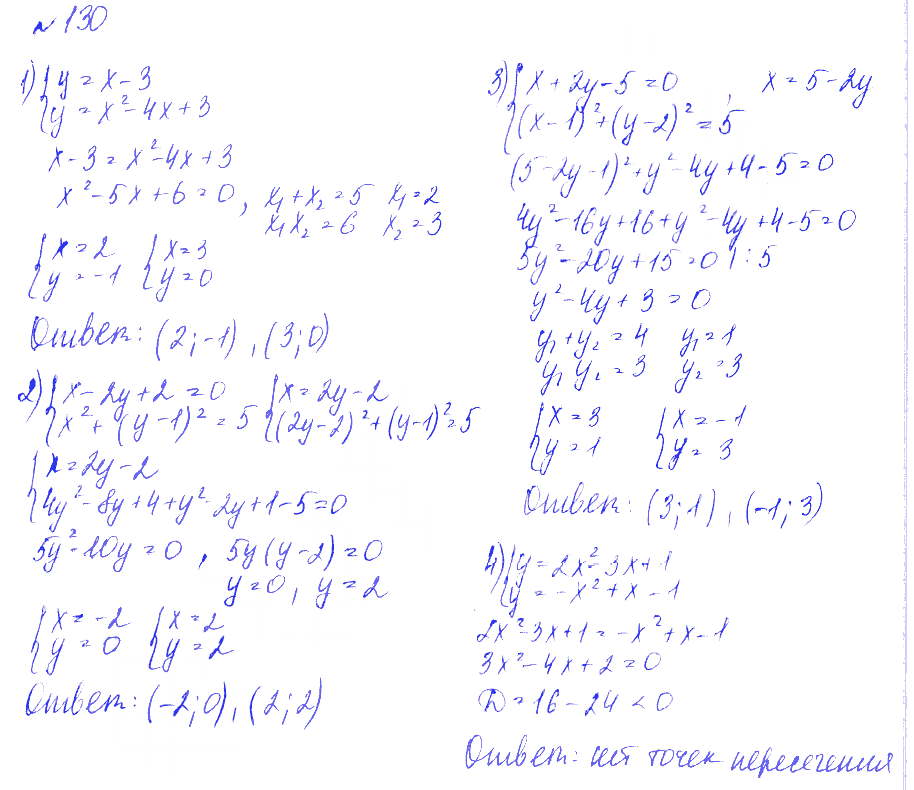 № 130
1) { y = x - 3
{ y = x² - 4x + 3
x - 3 = x² - 4x + 3
x² - 5x + 6 = 0 , x₁ + x₂ = 5 x₁ = 2
x₁x₂ = 6 x₂ = 3
{ x = 2 { x = 3
{ y = -1 { y = 0
Ответ: (2; -1) , (3; 0)
2) { x - 2y + 2 = 0 { x = 2y - 2
{ x² + (y - 1)² = 5 { (2y - 2)² + (y - 1)² = 5
{ x = 2y - 2
{ 4y² - 8y + 4 + y² - 2y + 1 - 5 = 0
5y² - 10y = 0 , 5y (y - 2) = 0
y = 0 , y = 2
{ x = -2 { x = 2
{ y = 0 { y = 2
Ответ: (-2; 0) , (2; 2)
3) { x + 2y - 5 = 0 , x = 5 - 2y
{ (x - 1)² + (y - 2)² = 5
(5 - 2y - 1)² + y² - 4y + 4 - 5 = 0
4y² - 16y + 16 + y² - 4y + 4 - 5 = 0
5y² - 20y + 15 = 0 | : 5
y² - 4y + 3 = 0
y₁ + y₂ = 4 y₁ = 1
y₁ y₂ = 3 y₂ = 3
{ x = 3 { x = -1
{ y = 1 { y = 3
Ответ: (3; 1) , (-1; 3)
4) { y = 2x² - 3x + 1
{ y = -x² + x - 1
2x² - 3x + 1 = -x² + x - 1
3x² - 4x + 2 = 0
D = 16 - 24 < 0
Ответ: нет точек пересечения